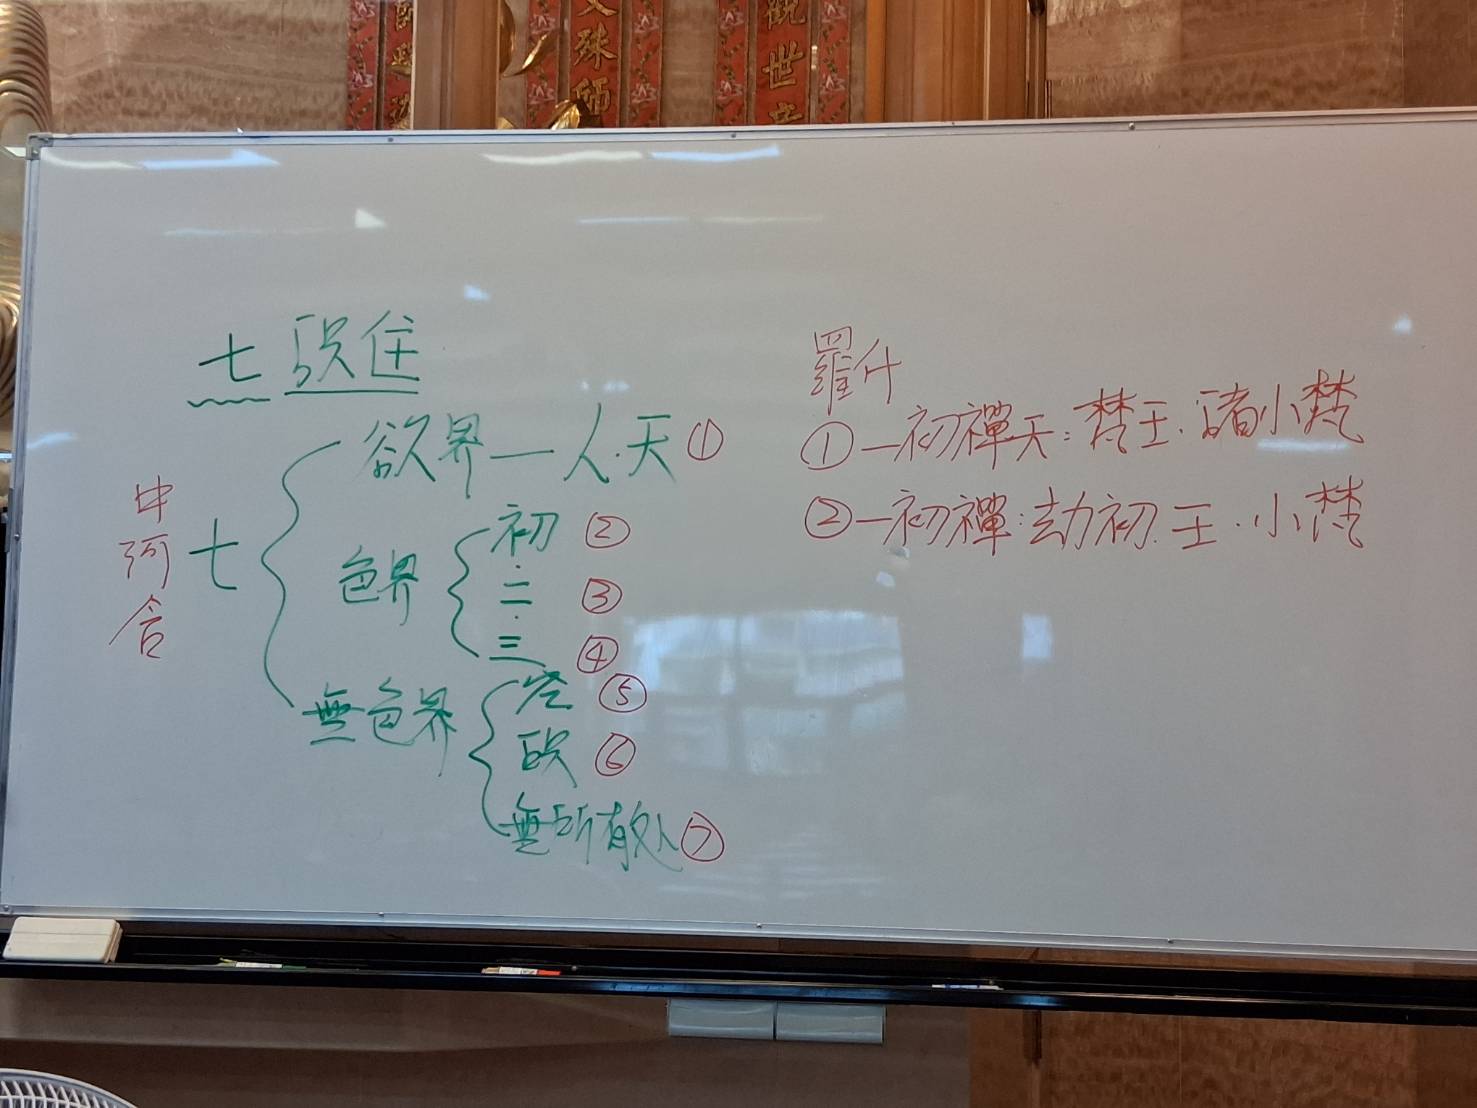 文殊師
觀世
七識住
中阿含
七
欲界—人.天①
色界
初 ②
二 ③
三 ④
無色界
空 ⑤
識 ⑥
無所有处 ⑦
羅什
①—初禪天:梵王.諸小梵
②—初禪:劫初.王.小梵